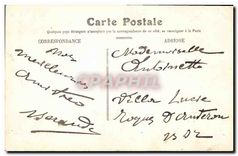 Carte Postale
Quelques pays étrangers n'acceptent pas la correspondance de ce côté, se renseigner à la Poste
CORRESPONDANCE
ADRESSE
Mes
meilleures
amitiés
Mademoiselle
Antoinette
Villa Lucie
Roque d'Antéron